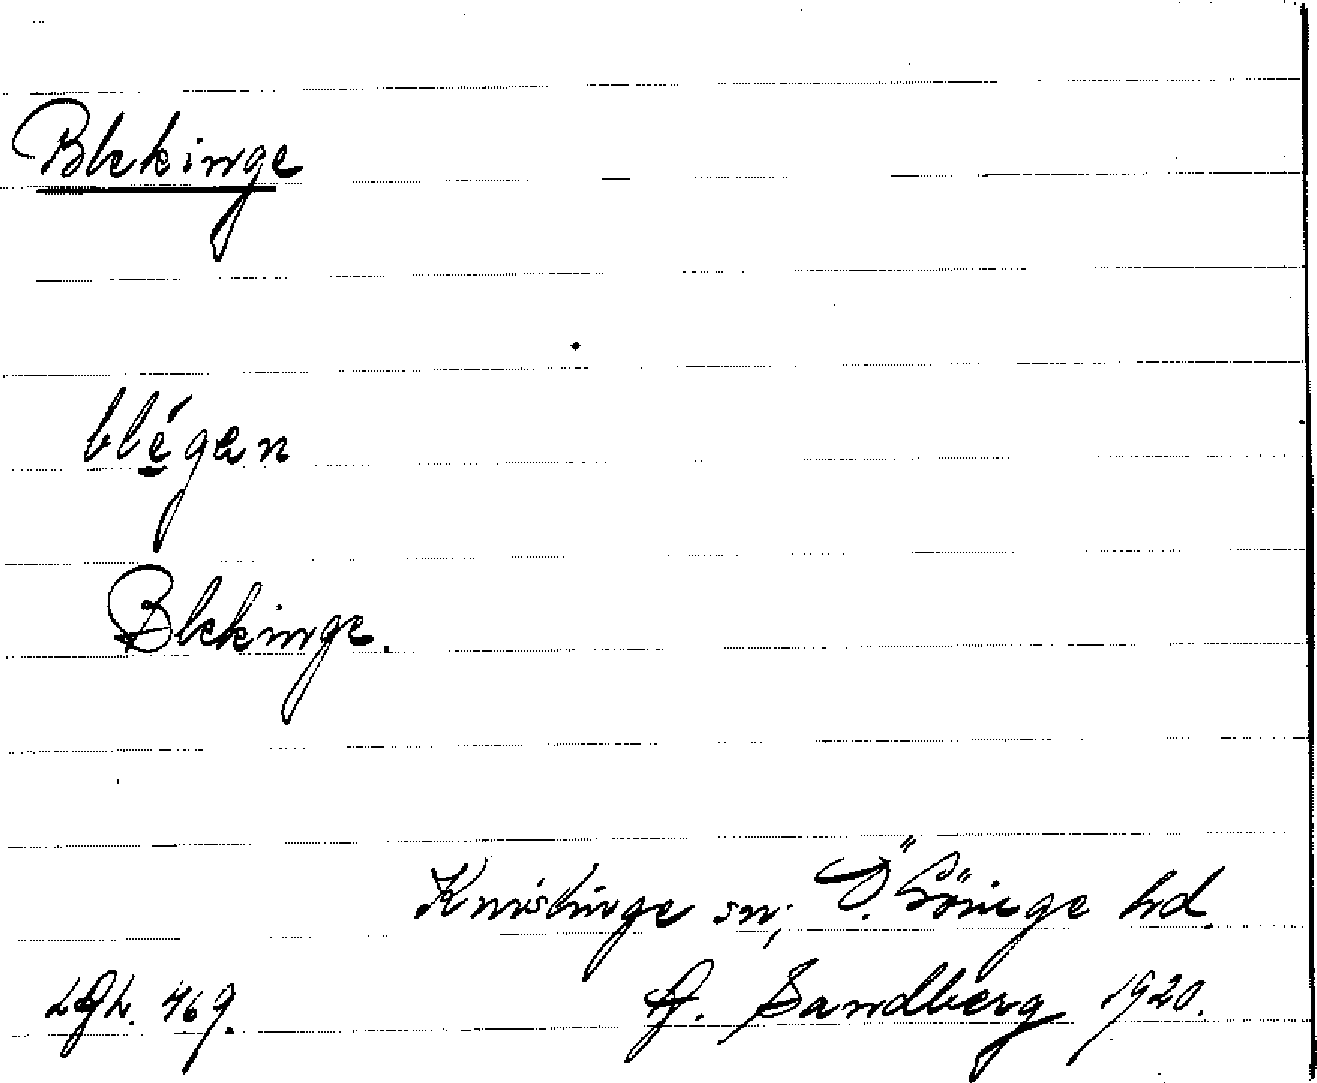 Blekinge
blégen
Blekinge.
Knislinge sn; Ö. Göinge hd.
LGL. 469. Sandberg 1920.